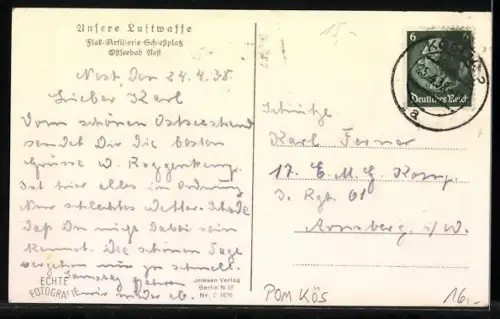 Unsere Luftwaffe
Flak-Artillerie Schießplatz
Ostseebad Nest
15.-
6
Deutsches Reich
a
Nest, den 24.4.38.
Lieber Karl
Vom schönen Ostseestrand
sendet Dir die besten
Grüsse W. Roggenkamp.
Ist hier alles in Ordnung
Nur schlechtes Wetter. Schade
daß Du nicht dabei sein
kannst. Die schönen Tage
vergehen nur zu schnell.
Samstag fahren
wir wieder ab.
Schütze
Karl Ferner
17. E. M. G. Komp.
J. Rgt. 61
Arnsberg i/W.
ECHTE
FOTOGRAFIE
Verlag
Berlin N
Nr.
POM KÖS
16,-